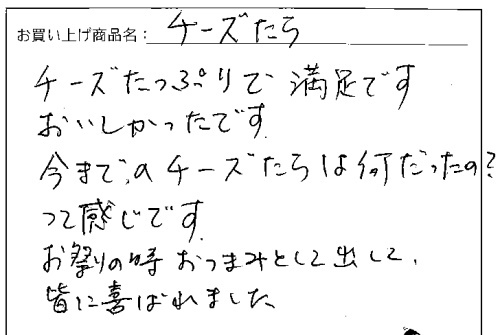 お買い上げ商品名：チーズたら
チーズたっぷりで満足です
おいしかったです
今までのチーズたらは何だったの？
って感じです。
お祭りの時おつまみとして出して、
皆に喜ばれました。